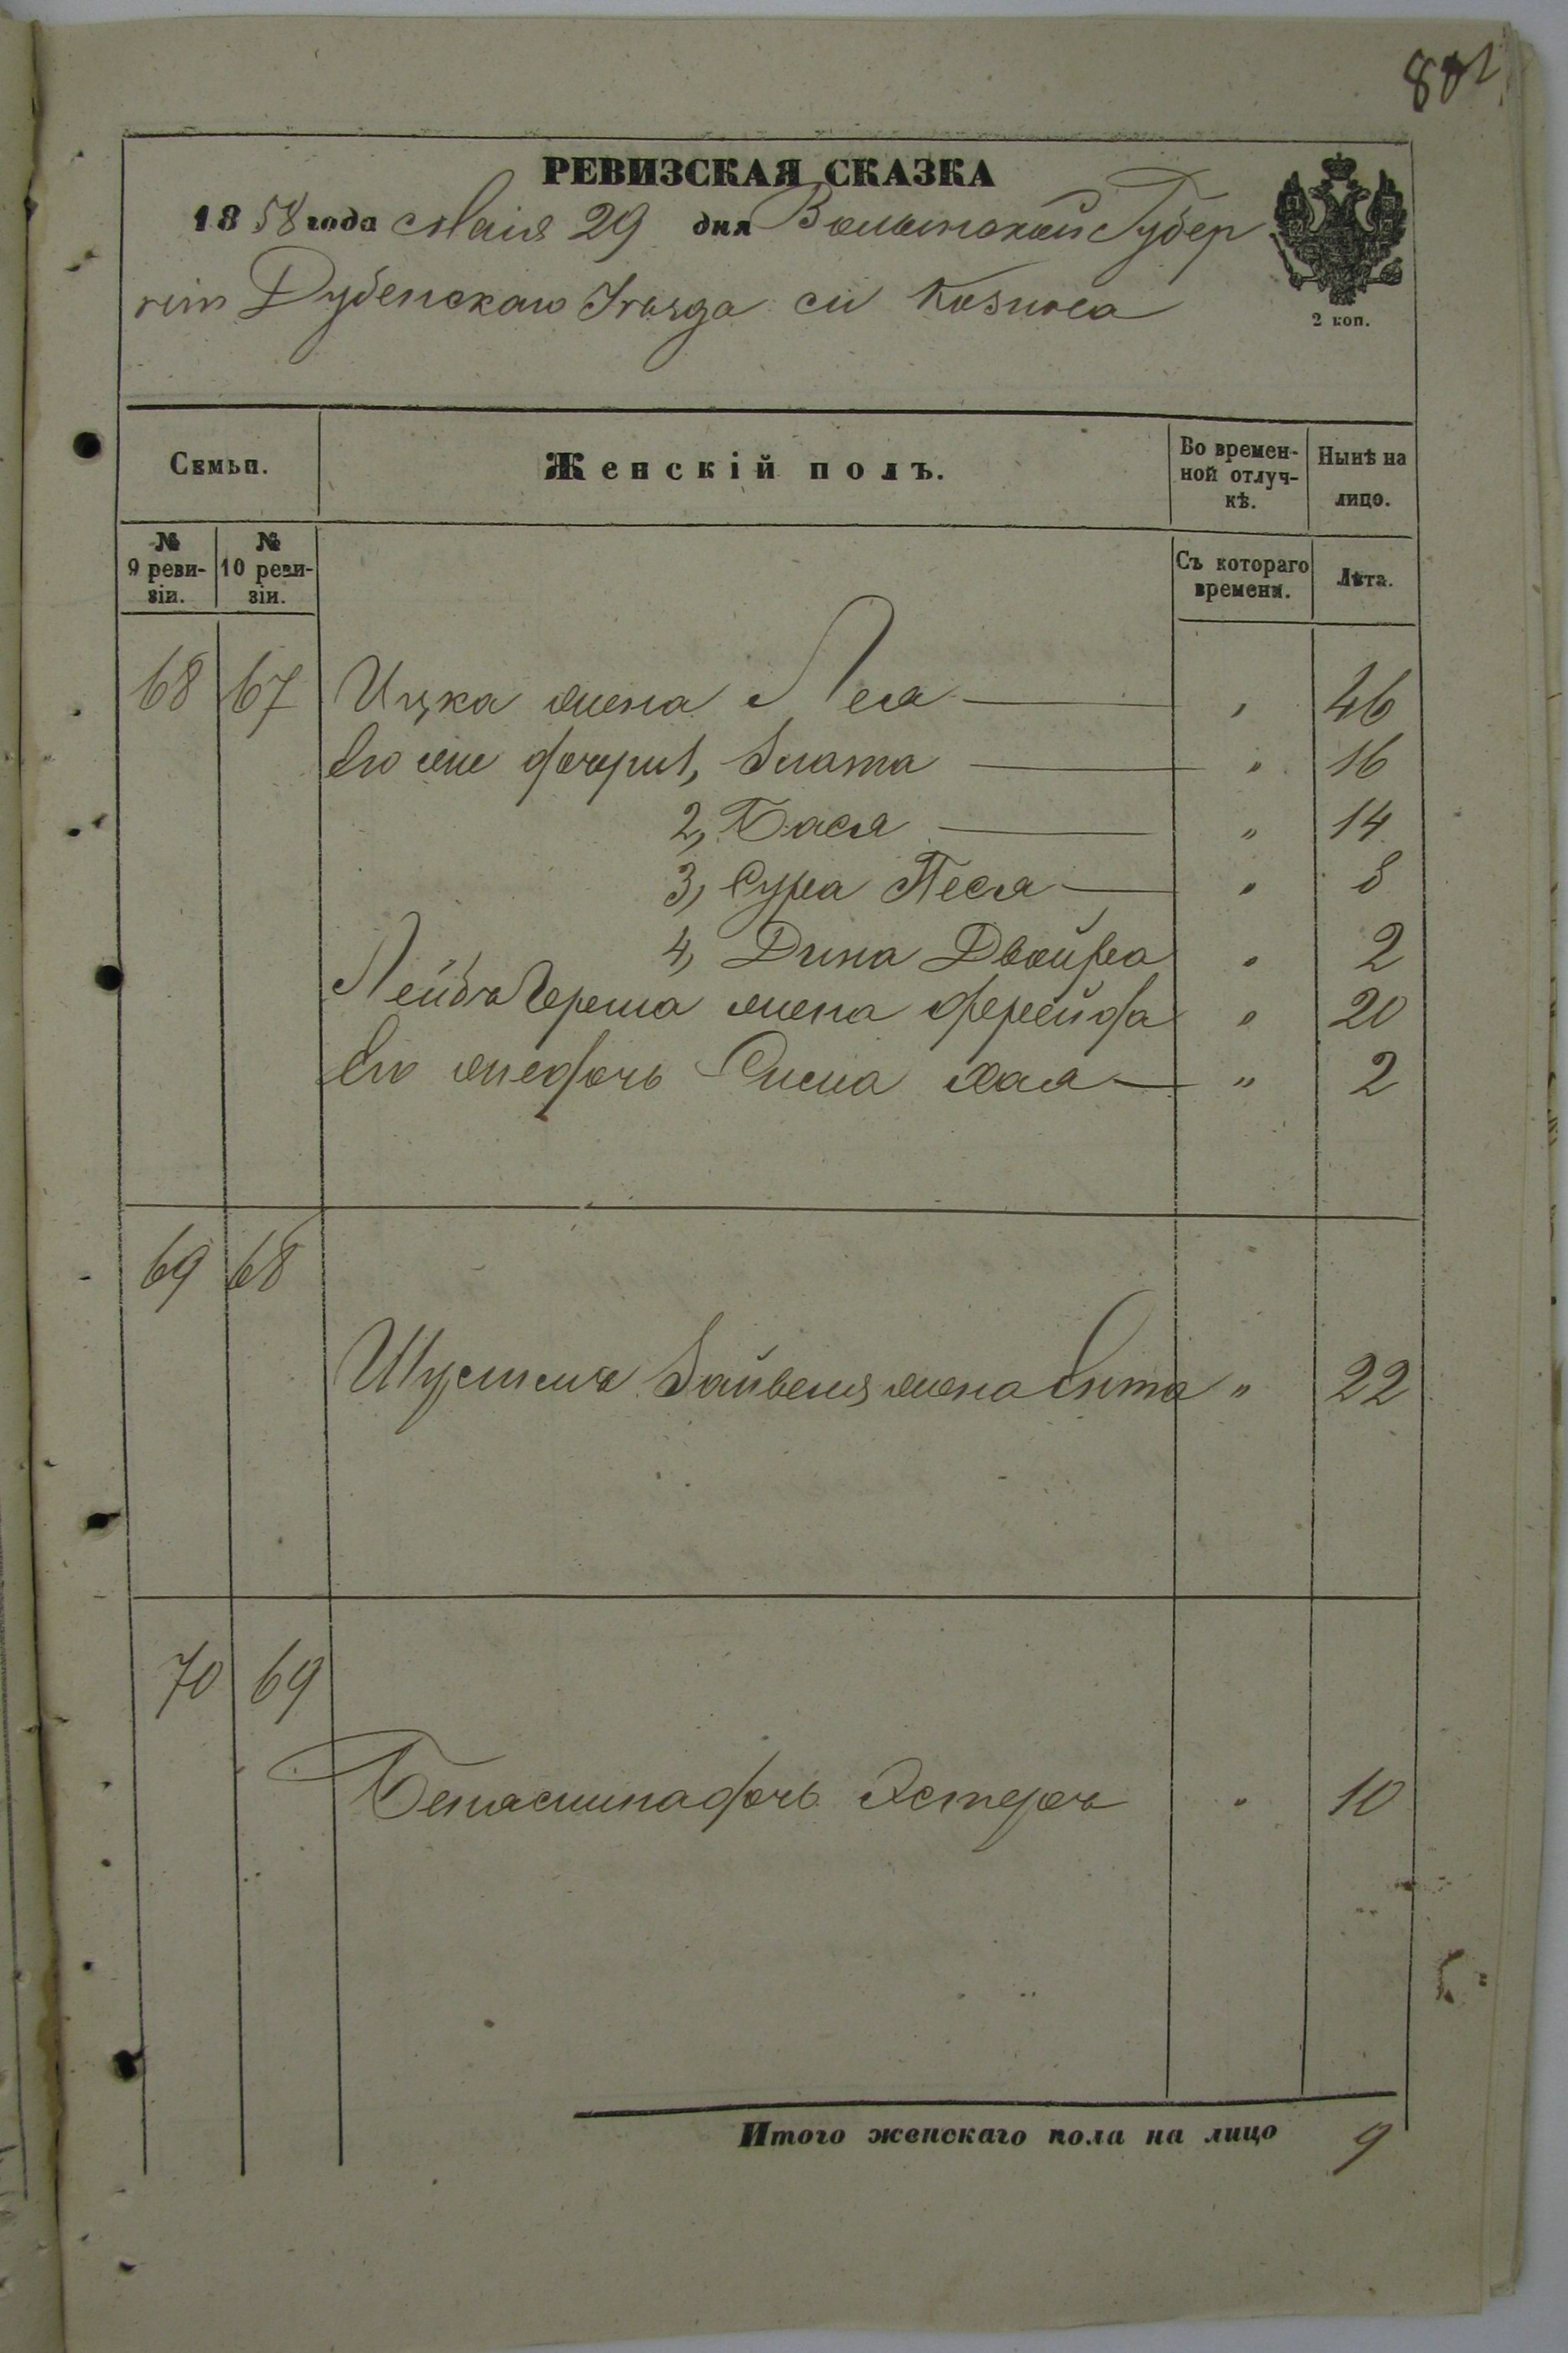 802
РЕВИЗСКАЯ СКАЗКА
1858 года Маія 29 дня Волынской Губер
ніи Дубенскаго Уѣзда м Козина
2 коп.
Семьи.
Женскій полъ.
Во времен-
ной отлуч-
кѣ.
Нынѣ на
лицо.
№
9 реви-
зіи.
№
10 реви-
зіи.
Съ котораго
времени.
Лѣта.
68 67 Ицка жена Лея — " 46
Его же дочери 1, Злата — " 16
2, Бася — " 14
3, Сура Песя — " 8
4, Дина Двойра " 2
Лейбъ Герша жена Фрейда " 20
Его же дочь Хая — " 2
69 68
Шустеля Зайвеля жена Гитя " 22
70 69
дочь Эстеръ " 10
Итого женскаго пола на лицо 9